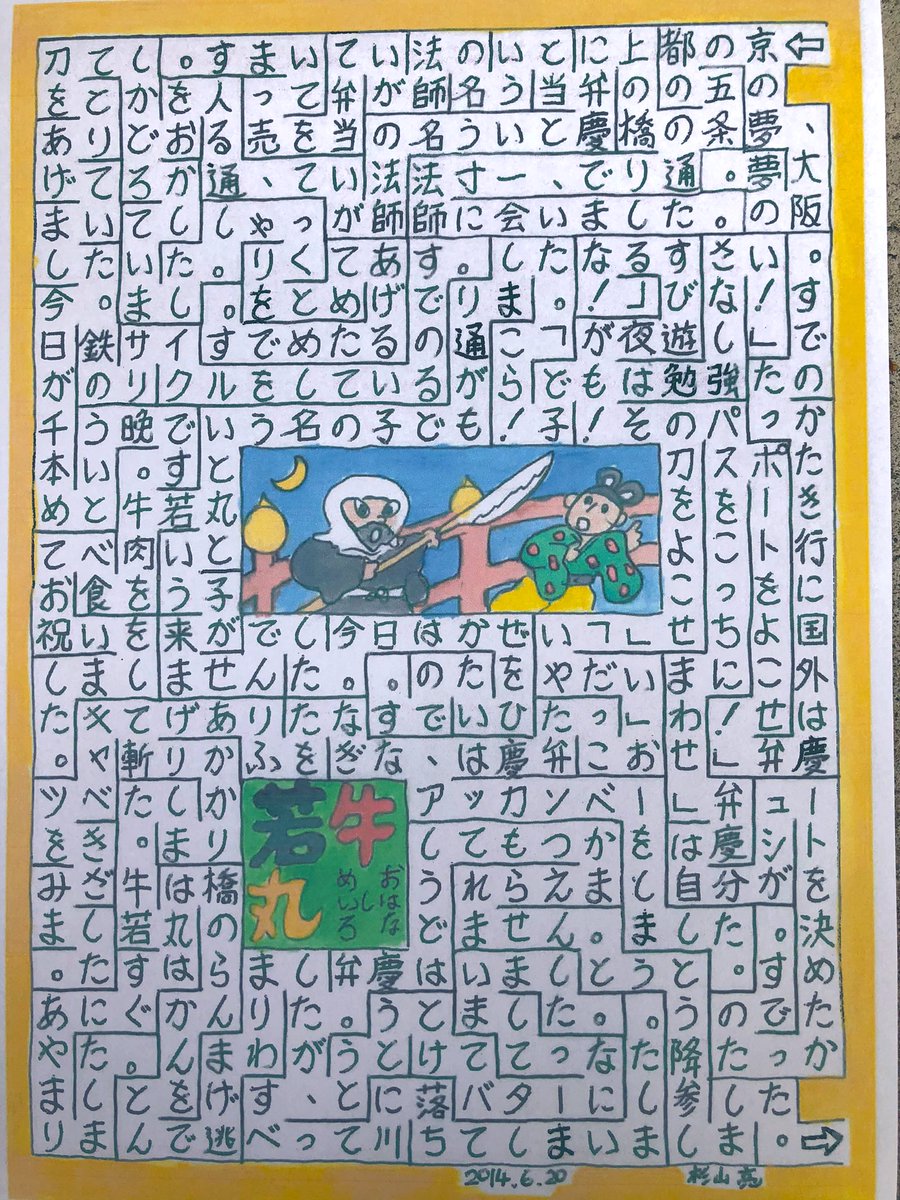 、大阪。すでのかたき行に国外は慶ートを決めたか
京の夢夢のい！」たっポートをよこせ弁ュシが。すでった。
の五条。。さなし強パスをこっちに！」弁慶分た。のたしま
都のの通たすび遊勉の刀をよこせまわせ」は自しとう降参し
上の橋りしる「夜はそ」い」おーをとまう。たしま
に弁慶でまな！がも！「だっこべかま。と。なにい
と当と、いた。「ど子いやた弁ンつえんしたっーま
いういー会しまこら！ぜをひ慶カもらせましてタし
の名う寸に。り通がもかたいはッてれまいまてバて
法師名法師すでのるどはので、アしうどはとけ落ち
いがの法師あげるい子日。すな慶うとに川
て弁当いがてめたての今。なぎ弁。うとて
いてをてっくとめし名したたをしたが、っ
まっ売、ゃりをでをうでんりふまりわすべ
す人る通し。。すルいと丸と子がせあかかり橋のらんまげ逃
。をおかしたしイクです若いう来まげりしまは丸はかんをで
しかどろていまサリ晩。牛肉をして斬た。牛若すぐ。とん
てとりていた。鉄のういとべ食いまキャべきざしたにたしま
刀をあげまし今日が千本めてお祝した。ツをみま。あやまり
牛若丸
おはなし
めいろ
2014.6.20
杉山亮